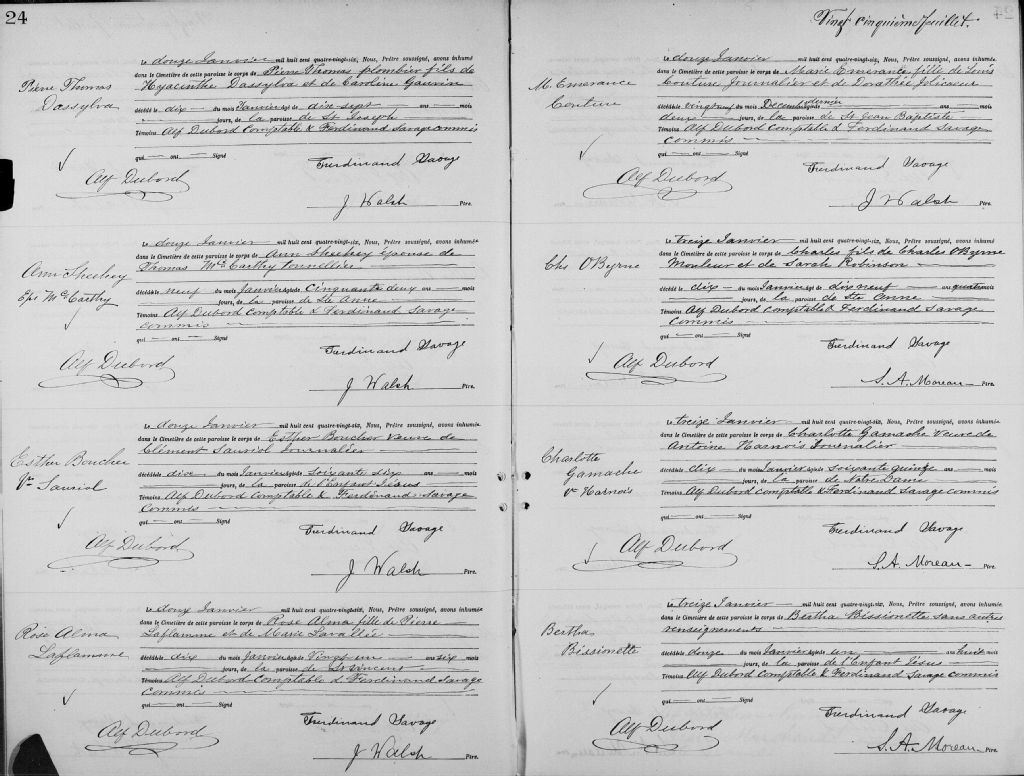 24
Pierre Thomas
Dassylva
Le douze Janvier mil huit cent quatre-vingt-six, Nous, Prêtre soussigné, avons inhumé
dans le Cimetière de cette paroisse le corps de Pierre Thomas plombier fils de
Hyacinthe Dassylva et de Caroline Gauvin
décédé le dix du mois Janvier âgé de dix sept ans mois
jours, de la paroisse de St Joseph
Témoins Alf Dubord Comptable & Ferdinand Savage commis
qui ont Signé
Ferdinand Savage
Alf Dubord
J Walsh Ptre.
Ann Sheehey
Epse McCarthy
Le douze Janvier mil huit cent quatre-vingt-six, Nous, Prêtre soussigné, avons inhumé
dans le Cimetière de cette paroisse le corps de Ann Sheehey Epouse de
Thomas McCarthy tonnellier
décédé le neuf du mois Janvier âgé de Cinquante deux ans mois
jours, de la paroisse de Ste Anne
Témoins Alf Dubord Comptable & Ferdinand Savage
commis
qui ont Signé
Ferdinand Savage
Alf Dubord
J Walsh Ptre.
Esther Boucher
Ve Sauriol
Le douze Janvier mil huit cent quatre-vingt-six, Nous, Prêtre soussigné, avons inhumé
dans le Cimetière de cette paroisse le corps de Esther Boucher veuve de
Clément Sauriol Journalier
décédé le dix du mois Janvier âgé de Soixante six ans mois
jours, de la paroisse de l'Enfant Jésus
Témoins Alf Dubord Comptable & Ferdinand Savage
Commis
qui ont Signé
Ferdinand Savage
Alf Dubord
J Walsh Ptre.
Rose Alma
Laflamme
Le douze Janvier mil huit cent quatre-vingt-six, Nous, Prêtre soussigné, avons inhumé
dans le Cimetière de cette paroisse le corps de Rose Alma fille de Pierre
Laflamme et de Marie Lavallée
décédé le dix du mois Janvier âgé de Vingt un ans six mois
jours, de la paroisse de St Vincent
Témoins Alf Dubord Comptable & Ferdinand Savage
Commis
qui ont Signé
Ferdinand Savage
Alf Dubord
J Walsh Ptre.
Vingt cinquième feuillet.
M. Emerance
Couture
Le douze Janvier mil huit cent quatre-vingt-six, Nous, Prêtre soussigné, avons inhumé
dans le Cimetière de cette paroisse le corps de Marie Emerance fille de Louis
Couture Journalier et de Dorothée Jolicoeur
décédé le vingt neuf du mois Décembre dernier âgé de ans
deux jours, de la paroisse de St Jean Baptiste
Témoins Alf Dubord Comptable & Ferdinand Savage
commis
qui ont Signé
Ferdinand Savage
Alf Dubord
J Walsh Ptre.
Chs O'Byrne
Le treize Janvier mil huit cent quatre-vingt-six, Nous, Prêtre soussigné, avons inhumé
dans le Cimetière de cette paroisse le corps de Charles fils de Charles O'Byrne
Mouleur et de Sarah Robinson
décédé le dix du mois Janvier âgé de dix neuf ans quatre mois
jours, de la paroisse de Ste Anne
Témoins Alf Dubord comptable & Ferdinand Savage
Commis
qui ont Signé
Ferdinand Savage
Alf Dubord
S. A. Moreau Ptre.
Charlotte
Gamache
Ve Harnois
Le treize Janvier mil huit cent quatre-vingt-six, Nous, Prêtre soussigné, avons inhumé
dans le Cimetière de cette paroisse le corps de Charlotte Gamache Veuve de
Antoine Harnois Journalier
décédé le dix du mois Janvier âgé de soixante quinze ans mois
jours, de la paroisse de Notre Dame
Témoins Alf Dubord comptable & Ferdinand Savage commis
qui ont Signé
Ferdinand Savage
Alf Dubord
S. A. Moreau Ptre.
Bertha
Bissionette
Le treize Janvier mil huit cent quatre-vingt-six, Nous, Prêtre soussigné, avons inhumé
dans le Cimetière de cette paroisse le corps de Bertha Bissionette sans autres
renseignements
décédé le douze du mois Janvier âgé de un ans huit mois
jours, de la paroisse de l'Enfant Jésus
Témoins Alf Dubord Comptable & Ferdinand Savage commis
qui ont Signé
Ferdinand Savage
Alf Dubord
S. A. Moreau Ptre.